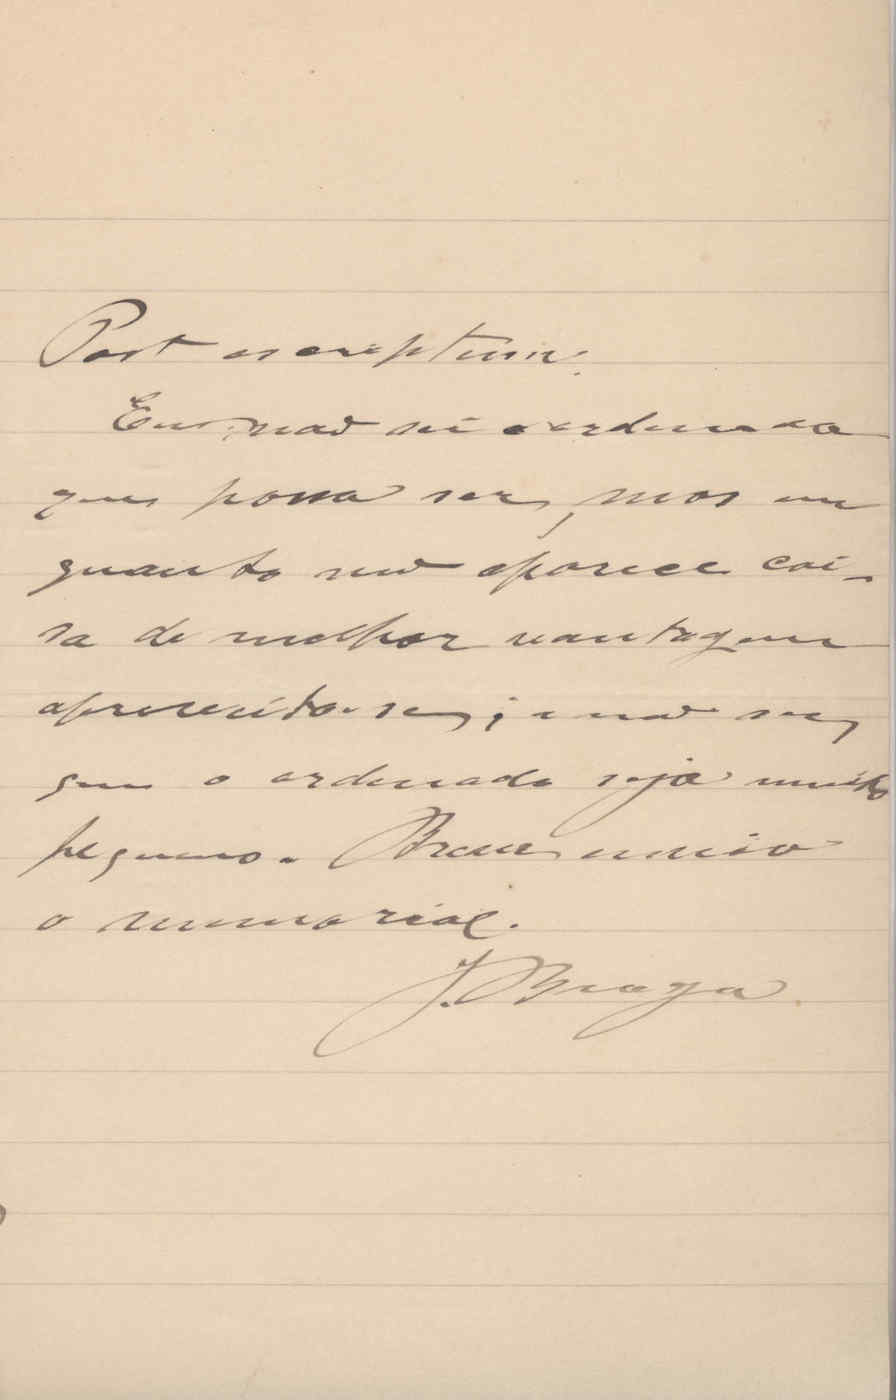 Post escriptum.
Eu não sei o ordenado
que possa ser, mas em
quanto não aparece coi-
sa de melhor vantagem
aproveita-se; e não sey
que o ordenado seja muito
pequeno. Breve envio
o memorial.
J. Braga